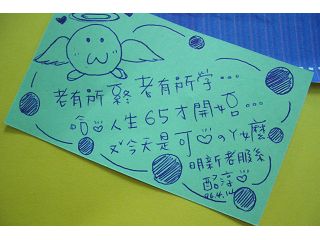 老有所終 老有所学...
哈♡人生65才開始...
今天是可♡の丫嬤
明新老服系
酷淳♡
96.4.14